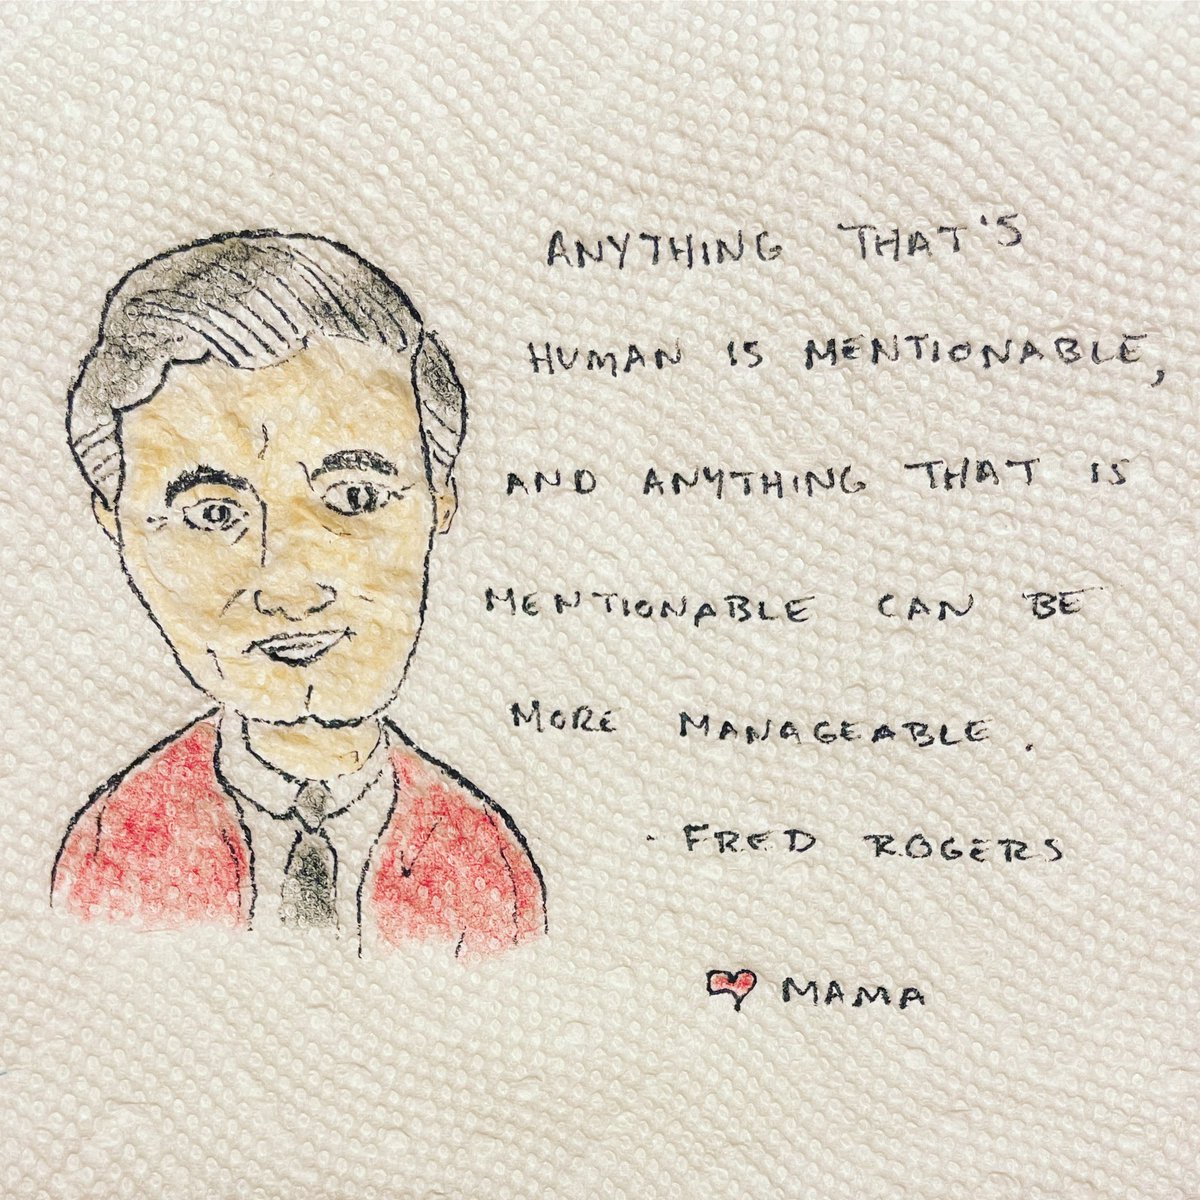 ANYTHING THAT'S
HUMAN IS MENTIONABLE,
AND ANYTHING THAT IS
MENTIONABLE CAN BE
MORE MANAGEABLE.
- FRED ROGERS
❤ MAMA